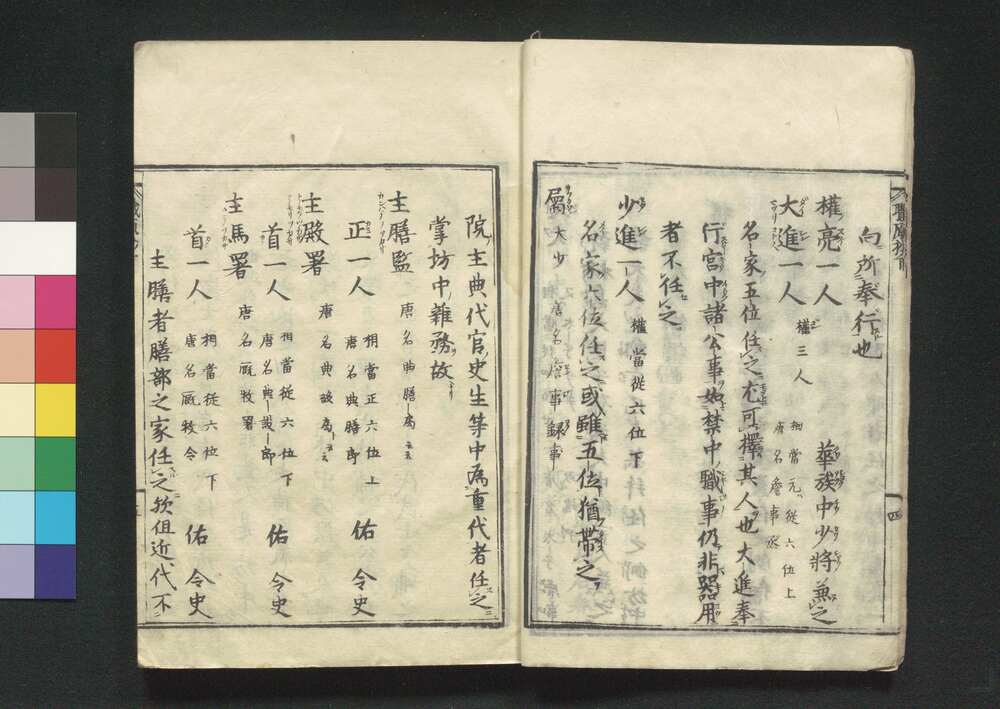 向所奉行也
權亮一人　華族中少將兼之
大進一人　權三人　相當元從六位上
唐名詹事丞
名家五位任之尤可擇其人也大進奉
行宮中諸公事如禁中職事仍非器用
者不任之
少進一人　權當從六位下
名家六位任之或雖五位猶帶之
屬大少　唐名詹事録事
四
院主典代官史生等中為重代者任之
掌坊中雜務故
主膳監　唐名典膳局云云
正一人　相當正六位上　佑　令史
唐名典膳郎
主殿署　唐名典設局云云
首一人　相當從六位下　佑　令史
唐名典設郎
主馬署　唐名厩牧署
首一人　相當從六位下　佑　令史
唐名厩牧令
主膳者膳部之家任之欤但近代不